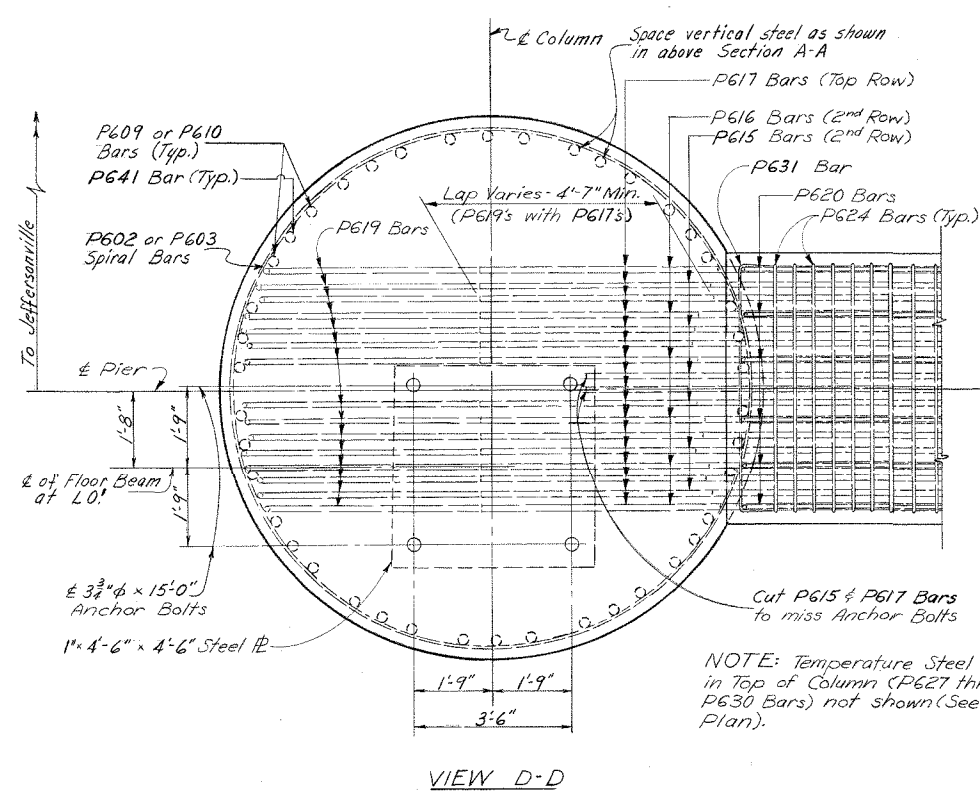 ℄ Column
Space vertical steel as shown
in above Section A-A
P617 Bars (Top Row)
P616 Bars (2nd Row)
P615 Bars (2nd Row)
P631 Bar
P620 Bars
P624 Bars (Typ.)
P609 or P610
Bars (Typ.)
P641 Bar (Typ.)
P602 or P603
Spiral Bars
Lap Varies - 4'-7" Min.
(P619's with P617's)
P619 Bars
To Jeffersonville
℄ Pier
1'-8"
1'-9"
℄ of Floor Beam
at L0'
1'-9"
℄ 3¾"ϕ × 15'-0"
Anchor Bolts
1" × 4'-6" × 4'-6" Steel ℙL
1'-9"
1'-9"
3'-6"
Cut P615 & P617 Bars
to miss Anchor Bolts
NOTE: Temperature Steel
in Top of Column (P627 th
P630 Bars) not shown (See
Plan).
VIEW D-D